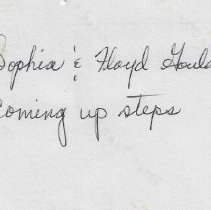 Sophia & Floyd Gould
Coming up steps